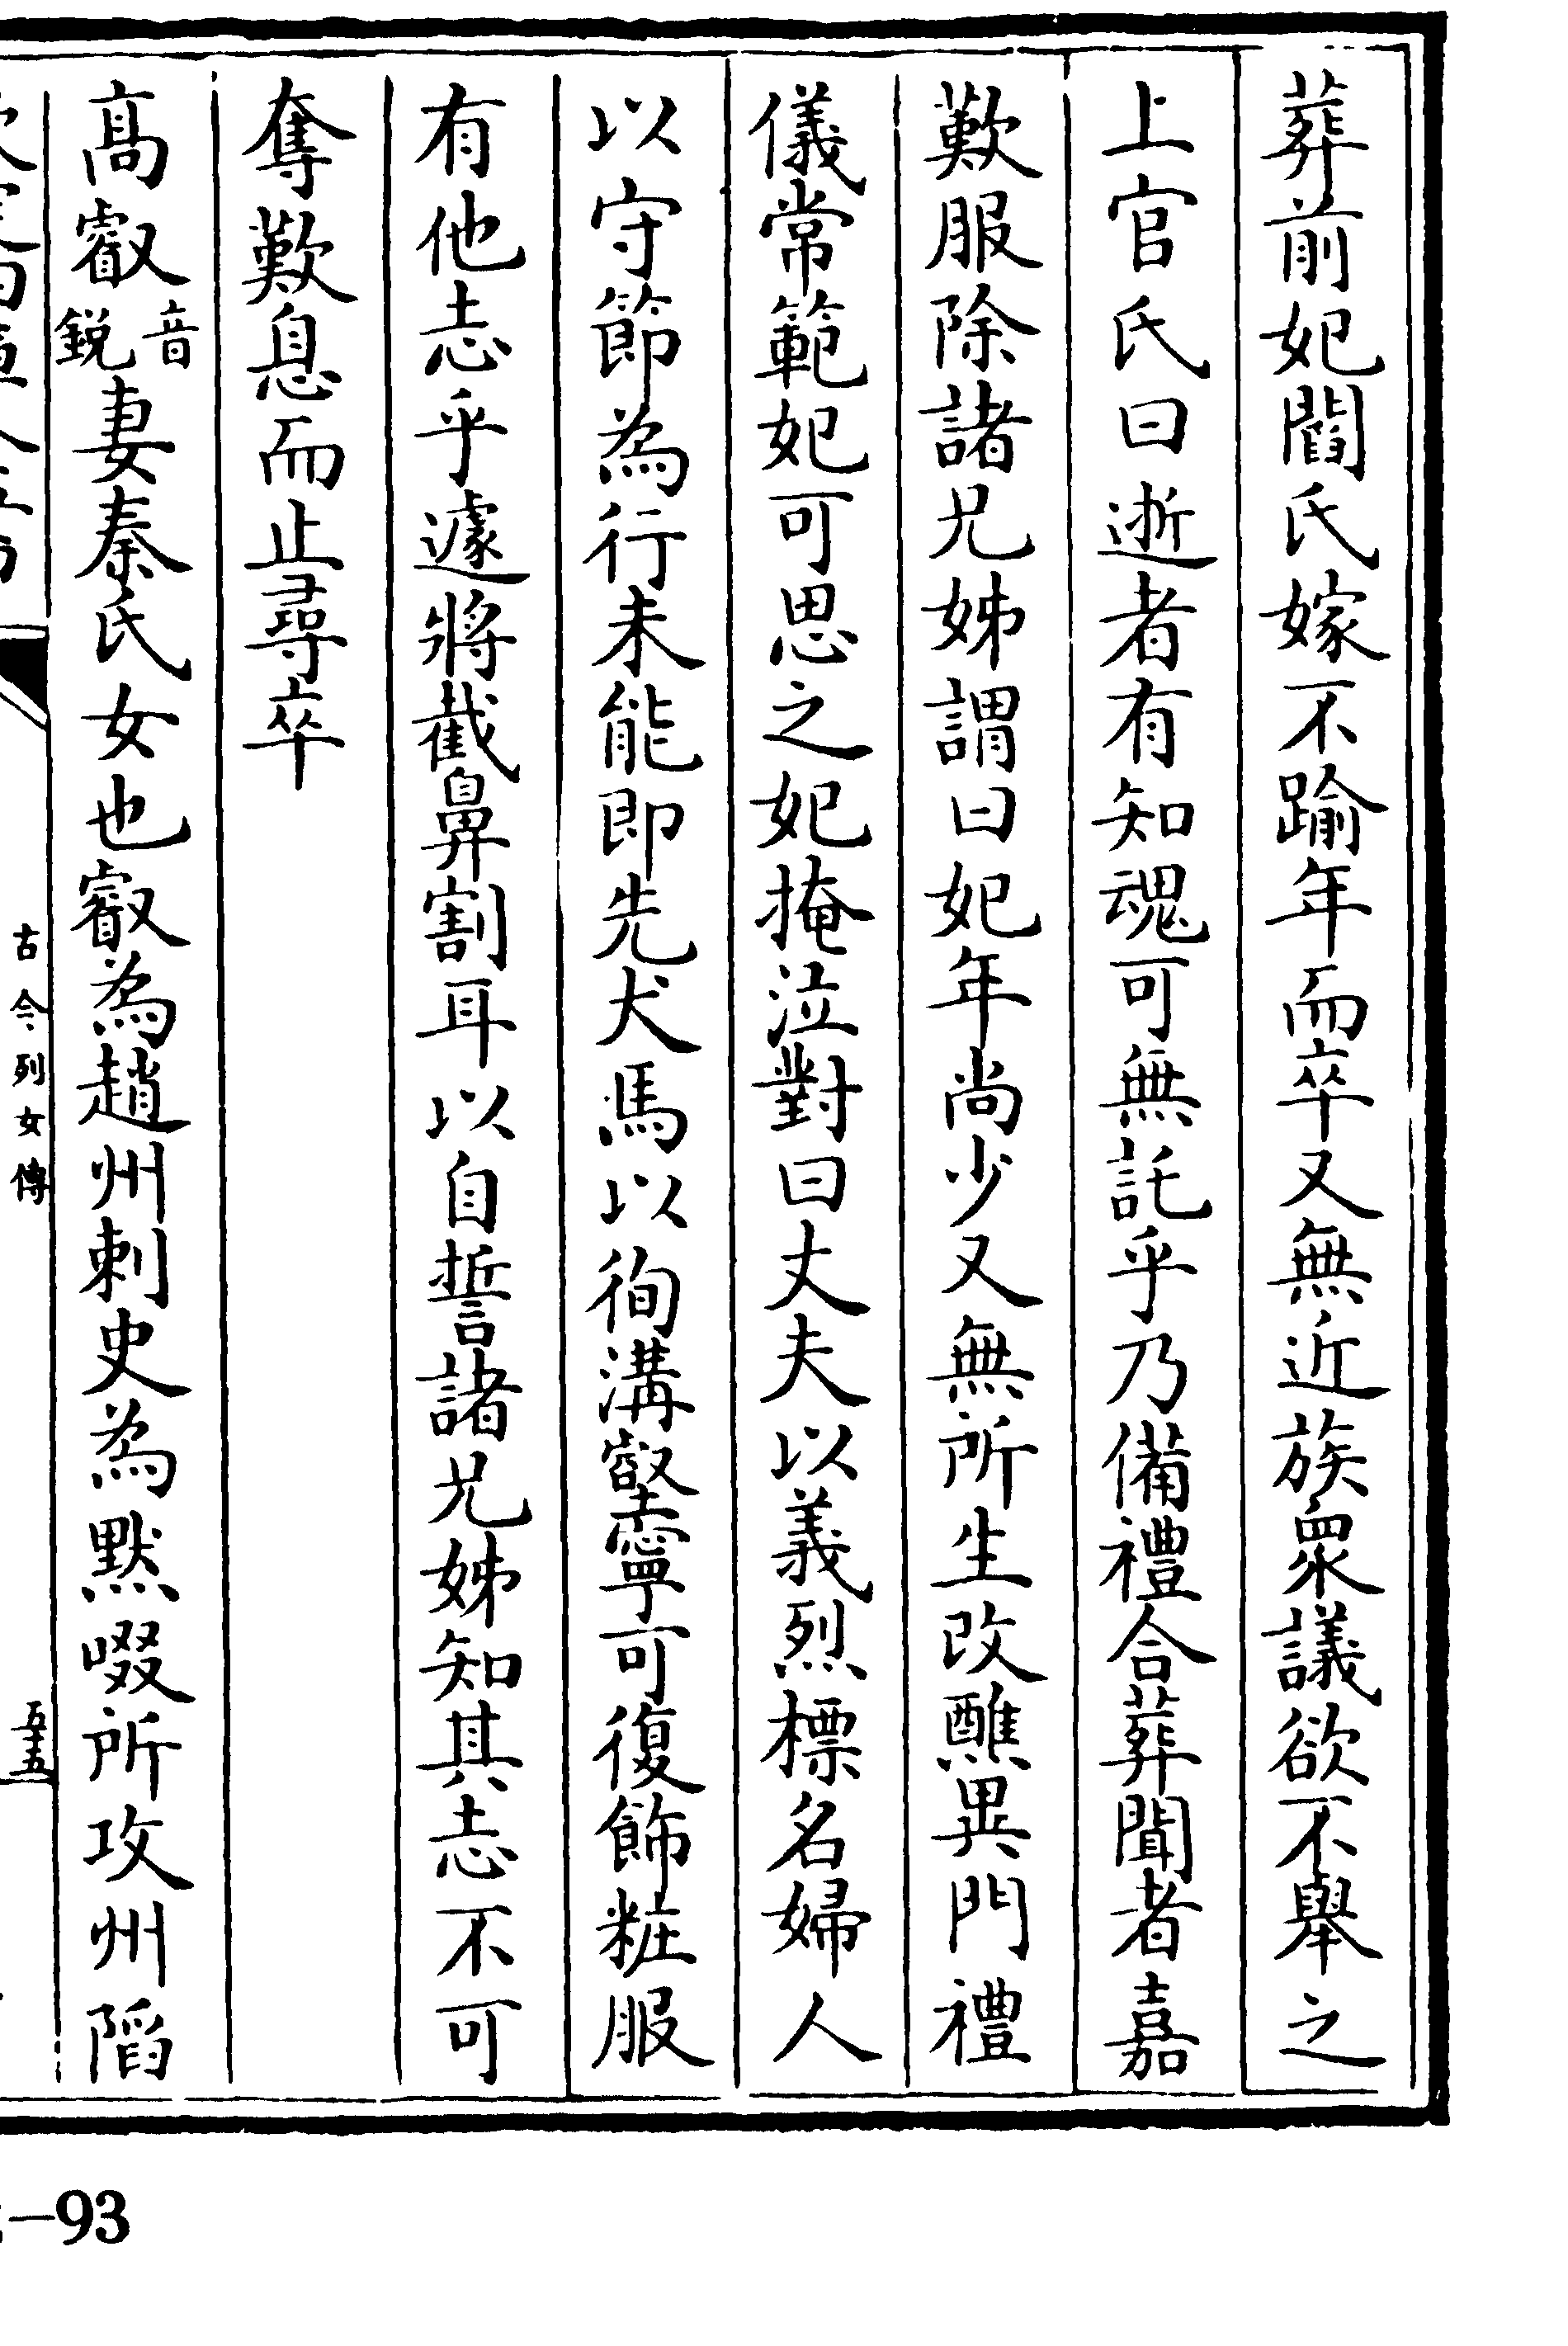 葬前妃閻氏嫁不踰年而卒又無近族衆議欲不舉之
上官氏曰逝者有知魂可無託乎乃備禮合葬聞者嘉
歎服除諸兄姊謂曰妃年尚少又無所生改醮異門禮
儀常範妃可思之妃掩泣對曰丈夫以義烈標名婦人
以守節為行未能即先犬馬以徇溝壑寧可復飾粧服
有他志乎遽將截鼻割耳以自誓諸兄姊知其志不可
奪歎息而止尋卒
高叡音鋭妻秦氏女也叡為趙州刺史為默啜所攻州陷
古今列女傳
五十五
—93